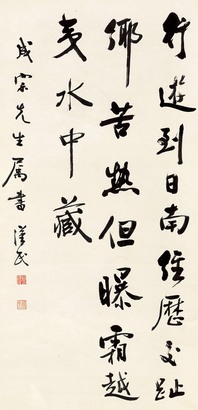 行遊到日南經歷交趾
鄉苦熱但曝霜越
夷水中藏
成宗先生屬書 漢民